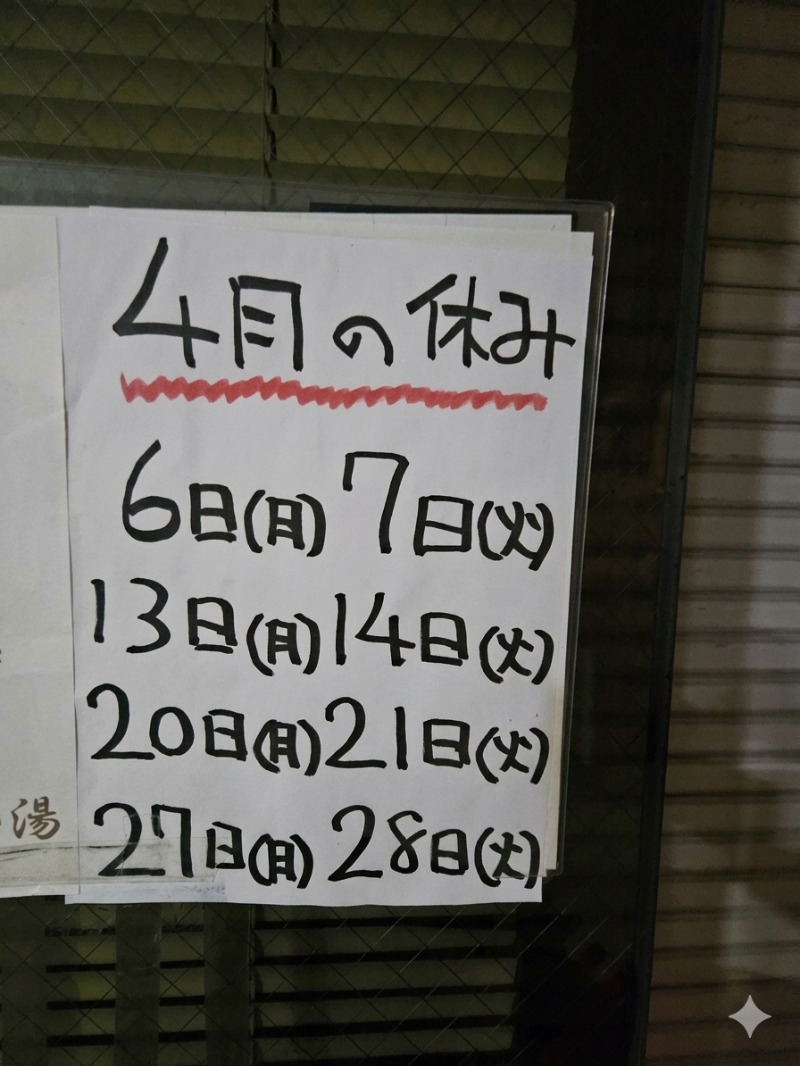 4月の休み
6日(月) 7日(火)
13日(月) 14日(火)
20日(月) 21日(火)
27日(月) 28日(火)
湯